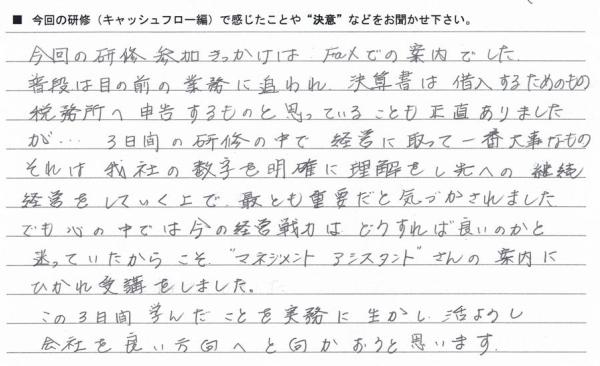 ■ 今回の研修（キャッシュフロー編）で感じたことや“決意”などをお聞かせ下さい。
今回の研修参加きっかけは Faxでの案内でした。
普段は目の前の業務に追われ、決算書は借入するためのもの
税務所へ申告するものと思っていることも正直ありました
が… 3日間の研修の中で 経営に取って一番大事なもの
それは我社の数字を明確に理解をし先への継続
経営をしていく上で、最とも重要だと気づかされました
でも心の中では今の経営戦力は、どうすれば良いのかと
迷っていたからこそ、“マネジメント アシスタント”さんの案内に
ひかれ受講をしました。
この3日間 学んだことを実務に生かし、活ようし
会社を良い方向へと向かおうと思います。